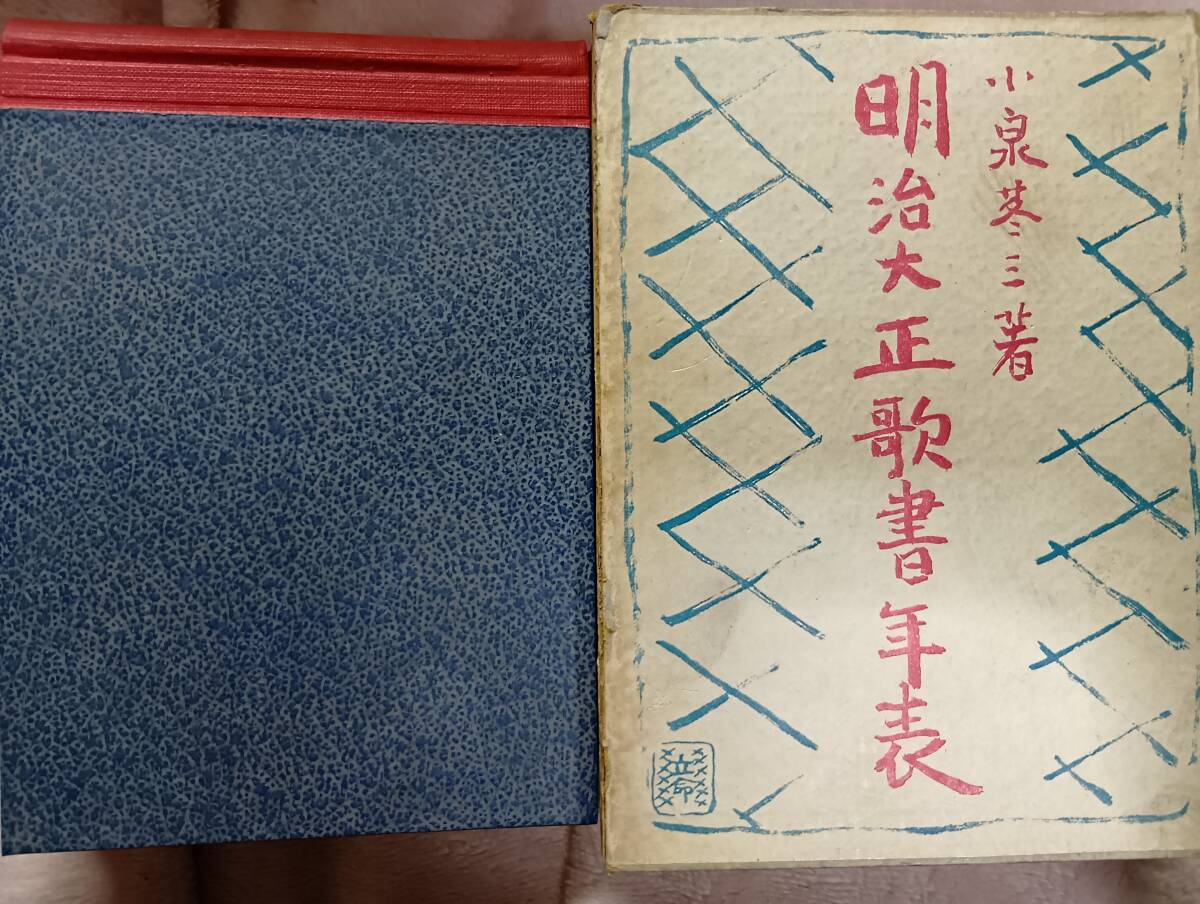 小泉苳三著
明治大正歌書年表
立命